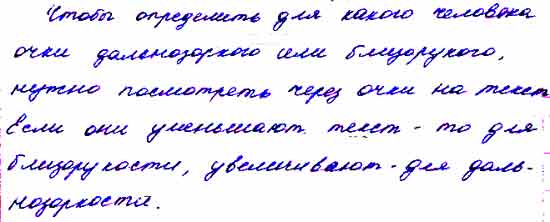 Чтобы определить для какого человека
очки дальнозоркого или близорукого,
нужно посмотреть через очки на текст
Если они уменьшают текст - то для
близорукости, увеличивают - для даль-
нозоркости.